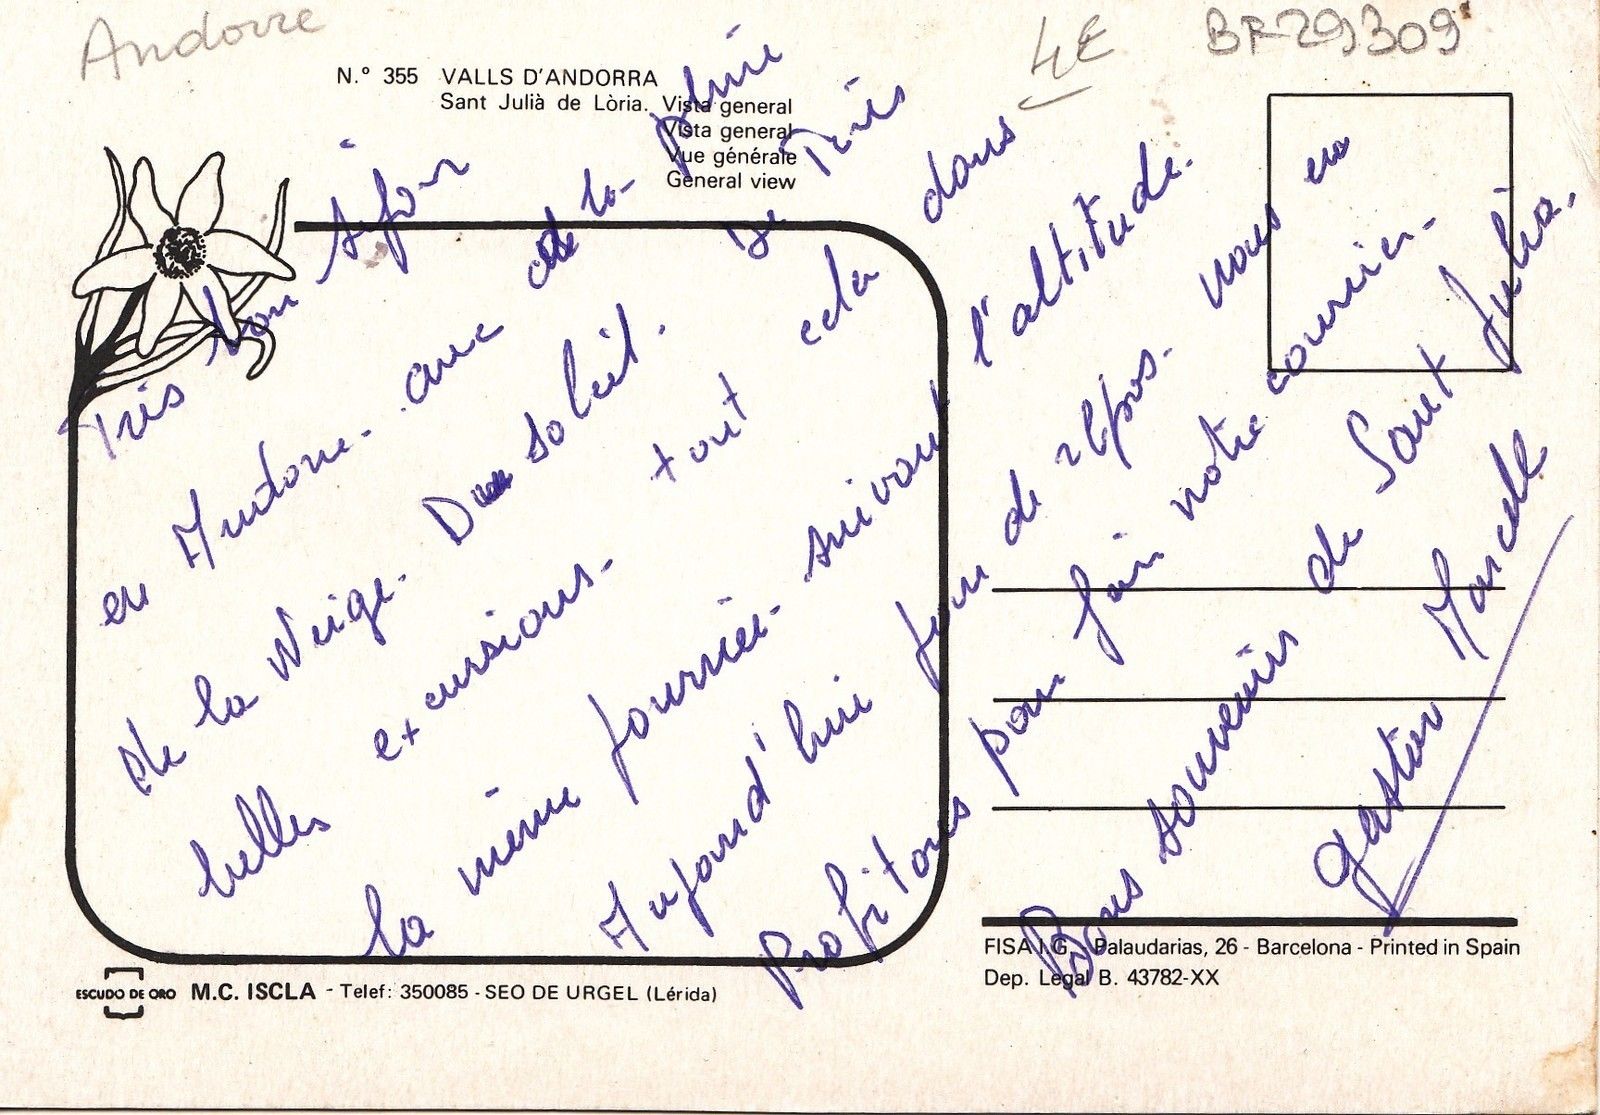 Andorre
4€
BF29309
N.º 355 VALLS D'ANDORRA
Sant Julià de Lòria. Vista general
Vista general
Vue générale
General view
Très bon séjour
en Andorre. avec de la pluie
de la Neige. Du soleil. De Très
belles excursions. tout cela dans
la même journée. suivant l'altitude.
Aujourd'hui jour de repos. nous en
Profitons pour faire notre courrier.
Bons souvenirs de Sant Julia.
gaston Marcelle
ESCUDO DE ORO M.C. ISCLA - Telef: 350085 - SEO DE URGEL (Lérida)
FISA I.G. - Palaudarias, 26 - Barcelona - Printed in Spain
Dep. Legal B. 43782-XX